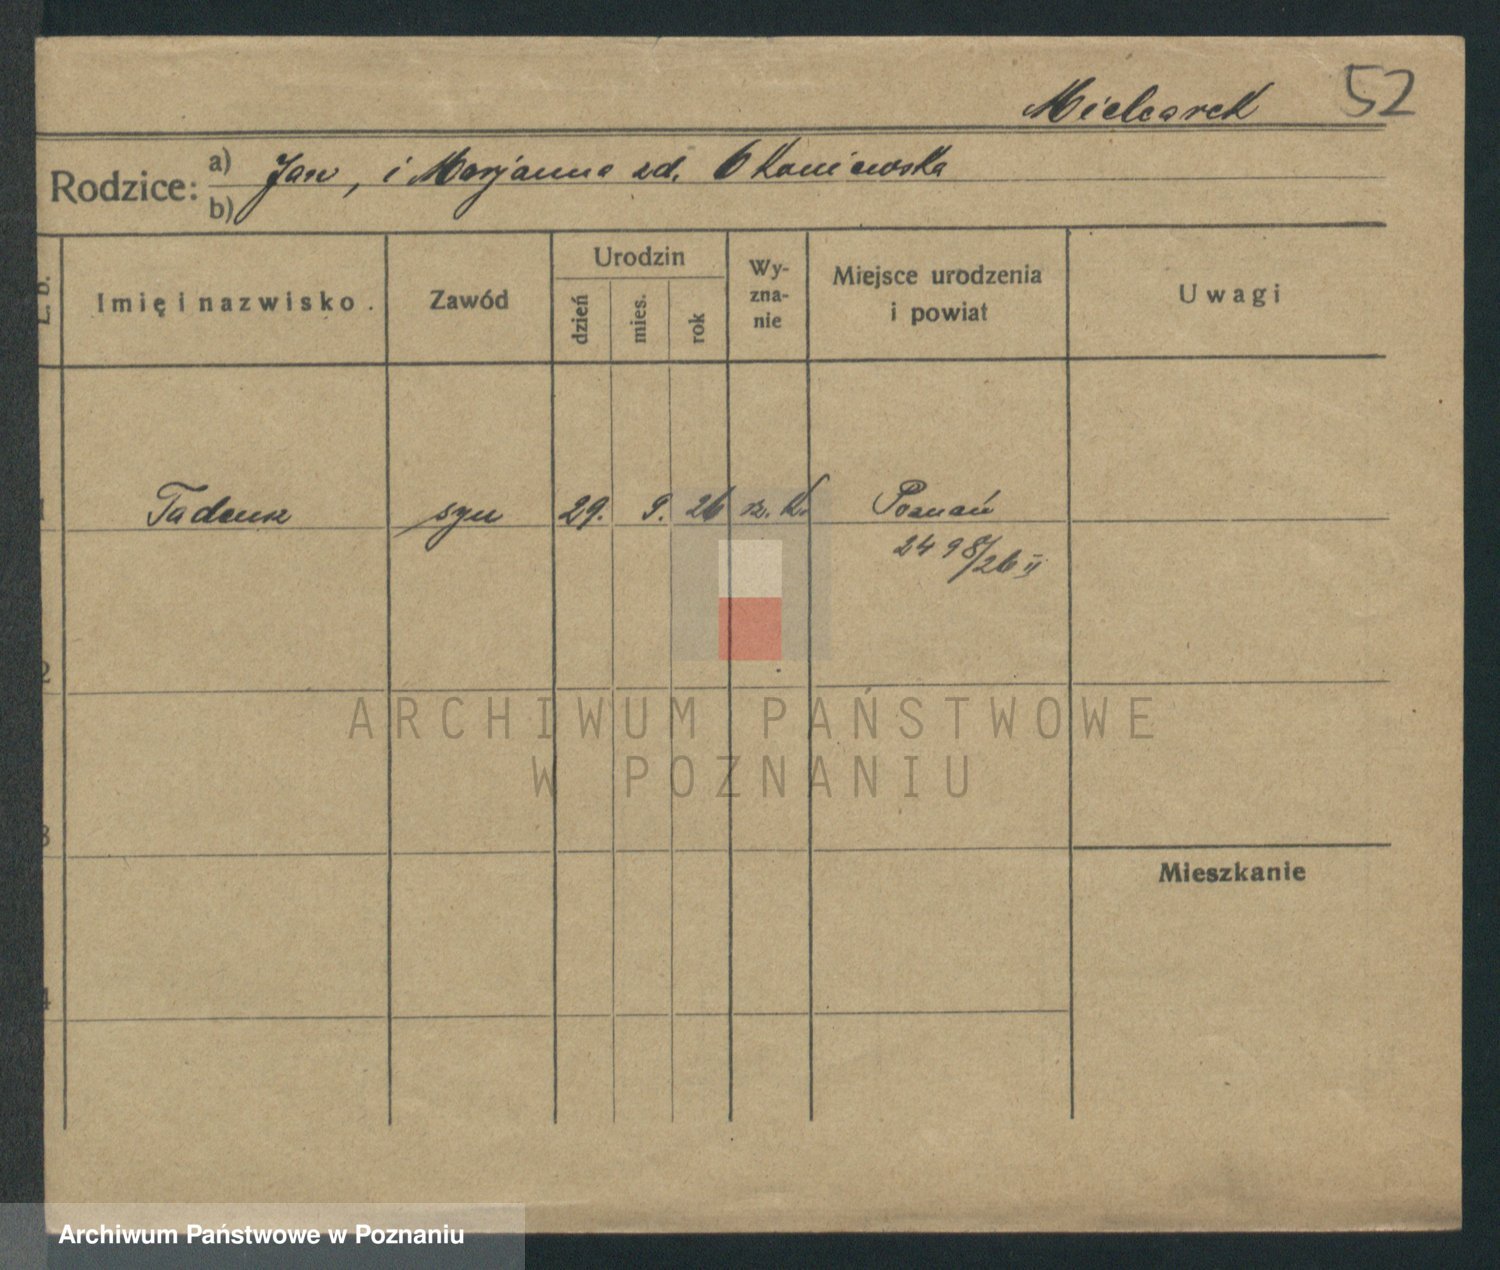 Mielcarek 52
Rodzice: a) Jan, i Marjanna zd. Okoniewska
b)
L. b. Imię i nazwisko. Zawód Urodzin dzień mies. rok Wy-zna-nie Miejsce urodzenia i powiat Uwagi
1 Tadeusz syn 29. 9. 26 rz. k. Poznań
2498/26 II
2
3
4
Mieszkanie
ARCHIWUM PAŃSTWOWE
W POZNANIU
Archiwum Państwowe w Poznaniu